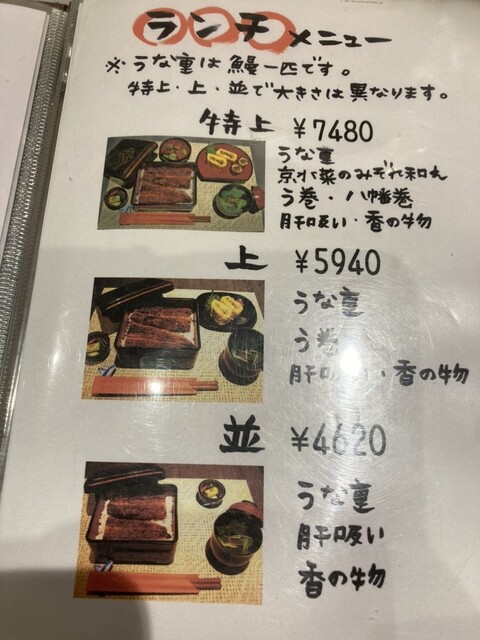 ランチメニュー
※うな重は鰻一匹です。
特上・上・並で大きさは異なります。
特上 ¥7480
うな重
京水菜のみぞれ和え
う巻・八幡巻
肝吸い・香の物
上 ¥5940
うな重
う巻
肝吸い・香の物
並 ¥4620
うな重
肝吸い
香の物